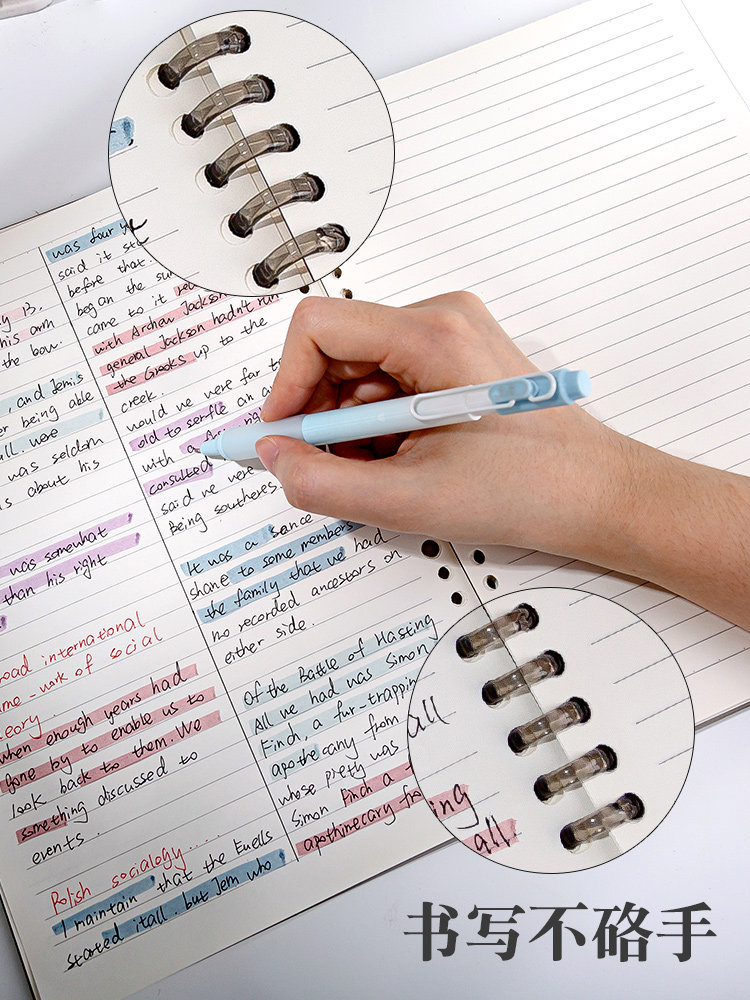 y 13.
his arm
the bow.
, and Jem's
r being able
all. wore
was seldom
s about his
was somewhat
than his right
road international
me-work of social
heory.
when enough years had
gone by to enable us to
look back to them. We
something discussed to
events.
Polish socialogy....
I maintain that the Ewells
started itall. but Jem who
was four ye
said it st
before that.
began the su
came to it
with Archew Jackson
general Jackson hadn't run
the Creeks up to the
creek.
would we were far t
old to serfle an a
with a
consulted
said we were
Being southeres.
It was a sance
shane to some members
the family that we had
no recorded ancestors on
either side.
Of the Battle of Hasting
All we had was Simon
Finch, a fur-trappin
apothecary from
whose prety was
Simon Finch a
apothinecary fro
all
ing
all
书写不硌手